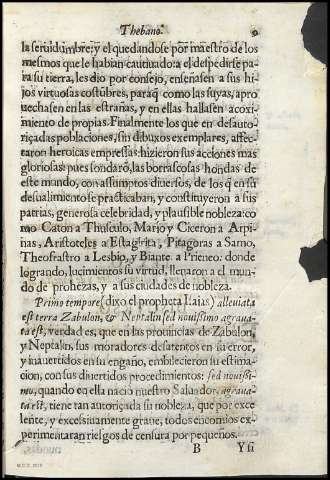 Thebano. 9
la seruidumbre; y el quedandose por maestro de los
mesmos que le habian cautiuado: a el despedirse pa
ra su tierra, les dio por consejo, enseñasen a sus hi
jos virtuosas costũbres, paraq̃ como las suyas, apro
uechasen en las estrañas, y en ellas hallasen acoxi
miento de propias. Finalmente los que en desauto-
riçadas poblaciones, sin dibuxos exemplares, affec-
taron heroicas empressas: hizieron sus acciones mas
gloriosas: pues sondarõ, las borrascosas hondas de
este mundo, con assumptos diuersos, de los q̃ en su
desualimiento se practicaban, y constituyeron a sus
patrias, generosa celebridad, y plausible nobleza: co
mo Caton a Thusculo, Mario y Ciceron a Arpi-
nas, Aristoteles a Estagirita, Pitagoras a Samo,
Theofrastro a Lesbio, y Biante a Prieneo: donde
logrando, lucimientos su virtud, llenaron a el mun-
do de prohezas, y a sus ciudades de nobleza.
Primo tempore (dixo el propheta Isaias) alleuiata
est terra Zabulon, & Neptali: sed novissimo agrava-
ta est, verdad es, que en las prouincias de Zabulon,
y Neptalin, sus moradores desatentos en su error,
y inauertidos en su engaño, embilecieron su estima-
cion, con sus diuertidos procedimientos: sed novissi-
mo, quando en ella nacio nuestro Saluador, agrava-
ta est, tiene tan autoriçada su nobleza, que por exce
lente, y excessiuamente graue, todos encomios ex-
perimentaran riesgos de censura por pequeños.
B Ysi